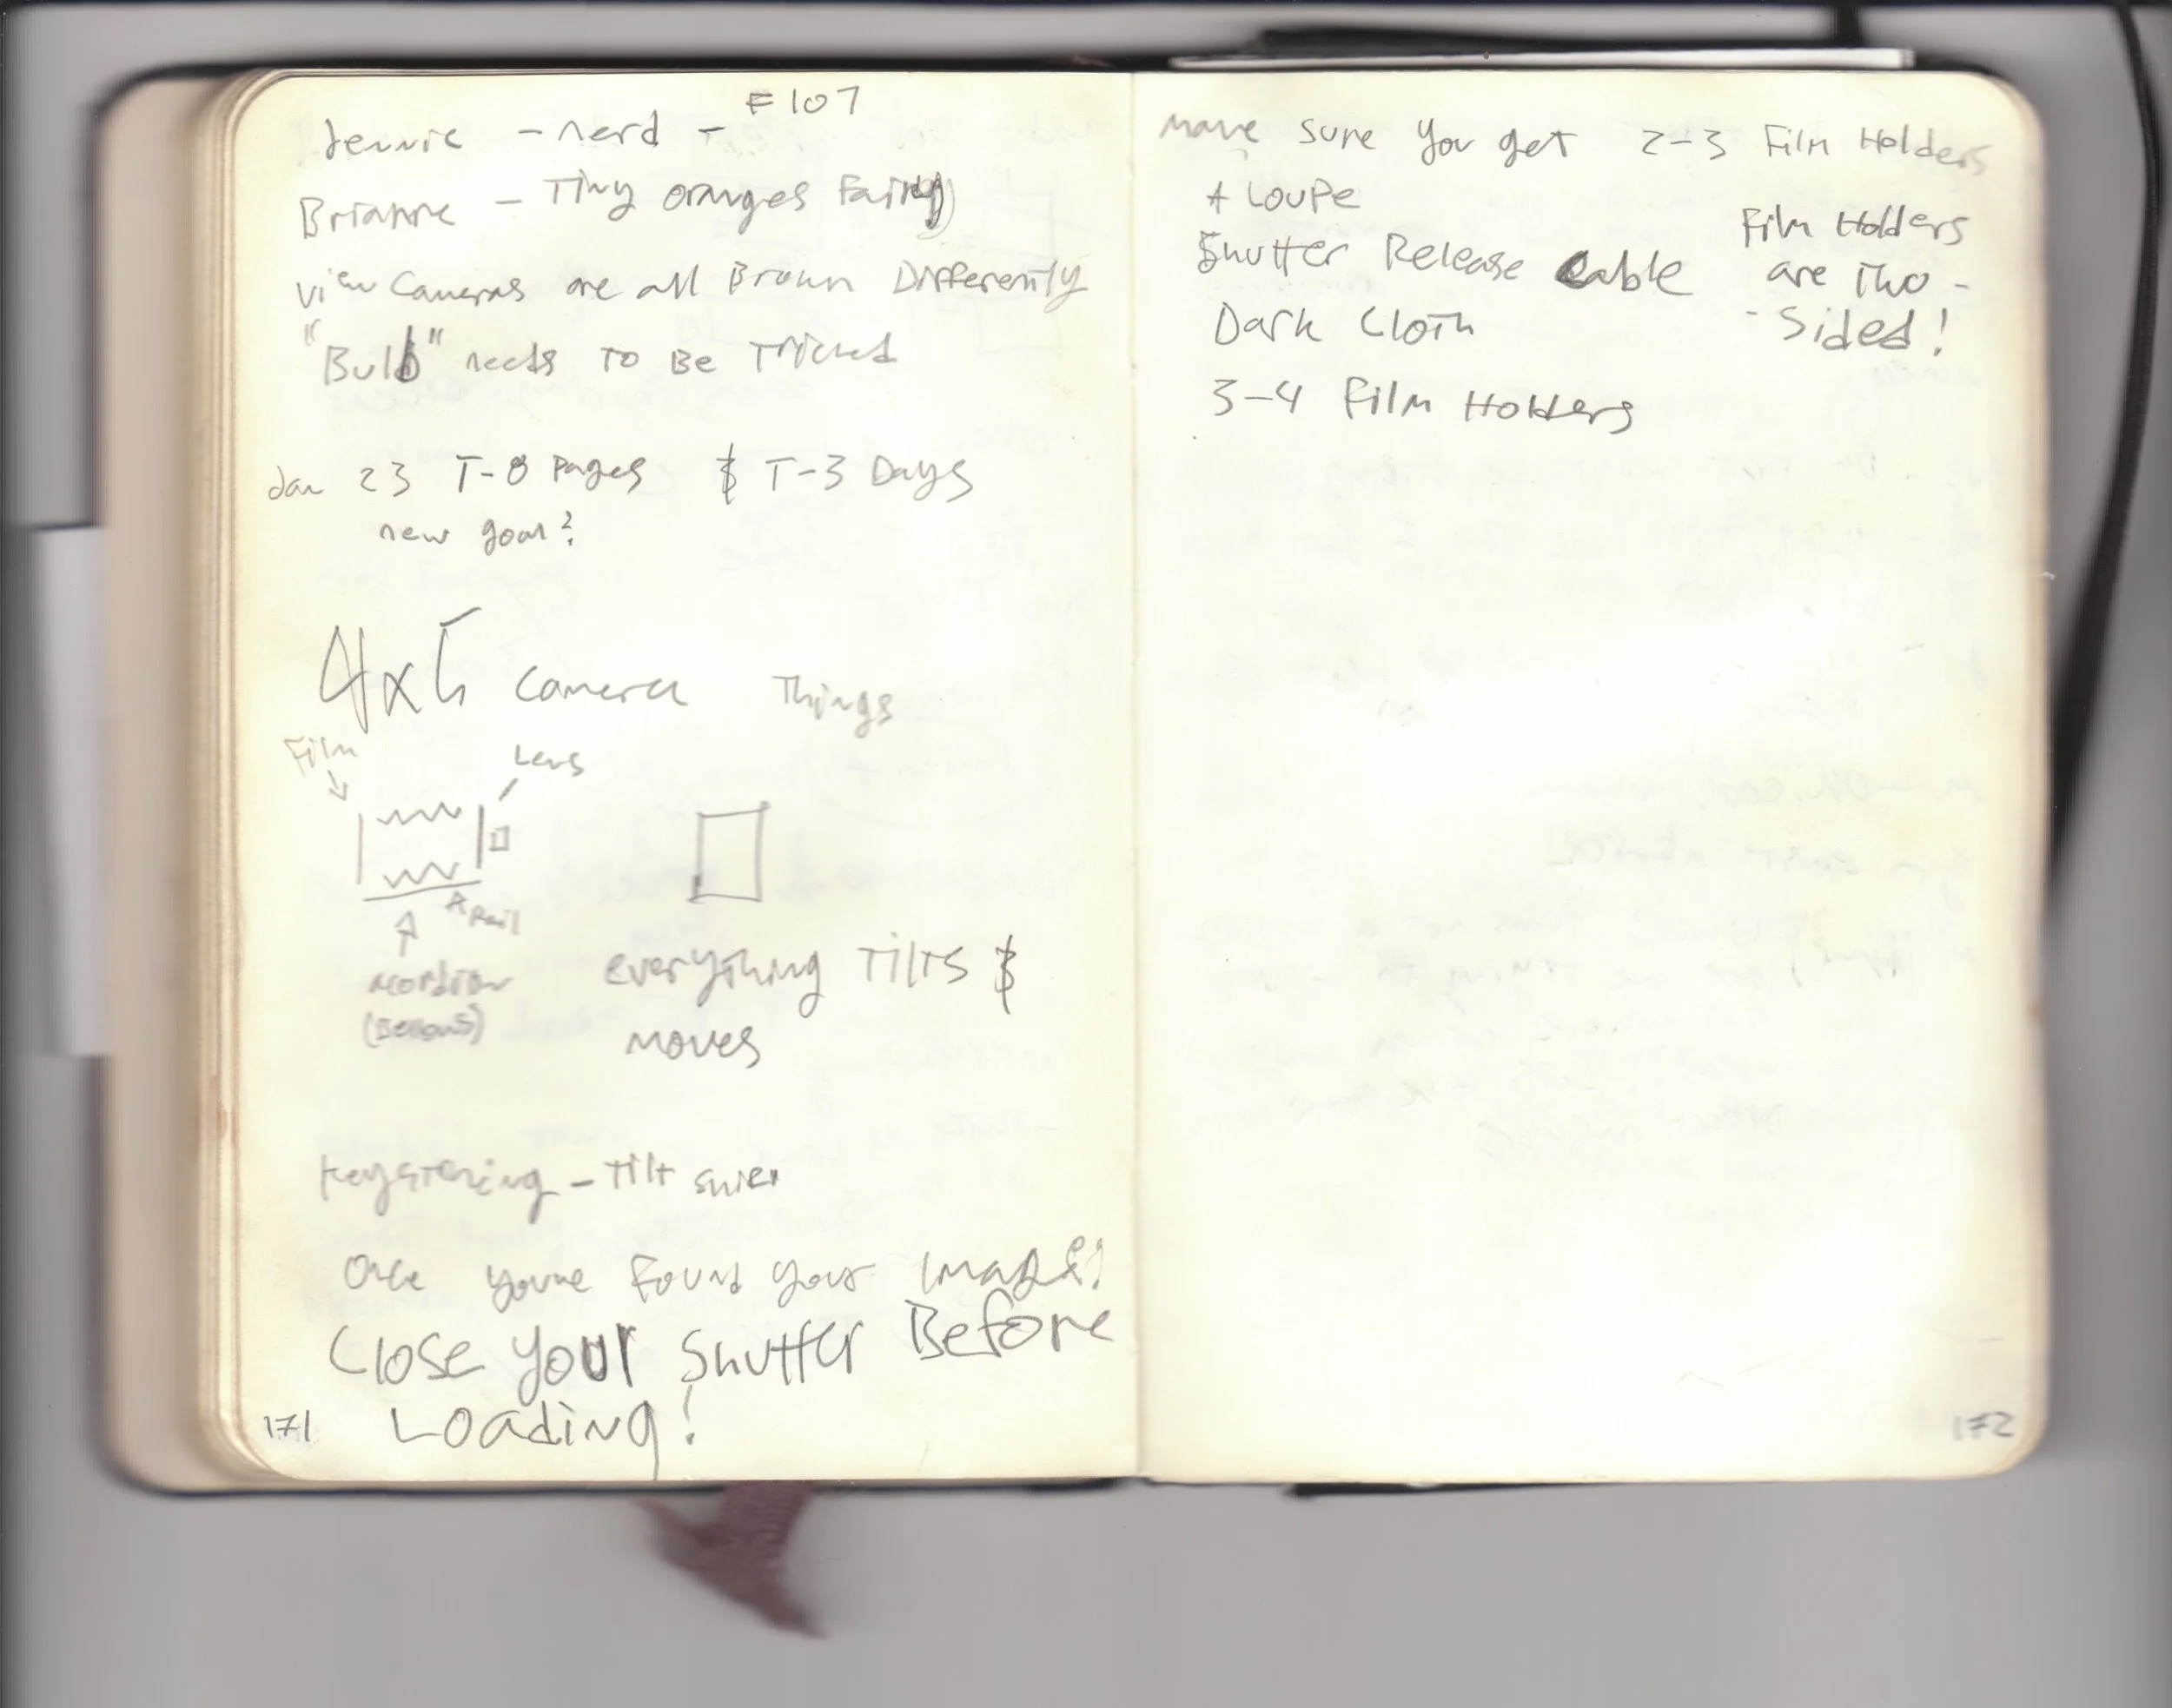 F107
Jennie - nerd -
Brianne - Tiny oranges Fairy
view Cameras are all Brown Differently
"Bulb" needs To Be Tricked
Jan 23 T-8 Pages & T-3 Days
new goal?
4x5 camera Things
Film
Lens
Rail
Acordion
(Bellows)
everything Tilts &
moves
Keystoning - Tilt
Once youve Found your Image!
Close your Shutter Before
Loading!
171
make sure You get 2-3 Film Holders
+ Loupe
Shutter Release Cable
Dark Cloth
3-4 Film Holders
Film Holders
are Two -
- Sided!
172